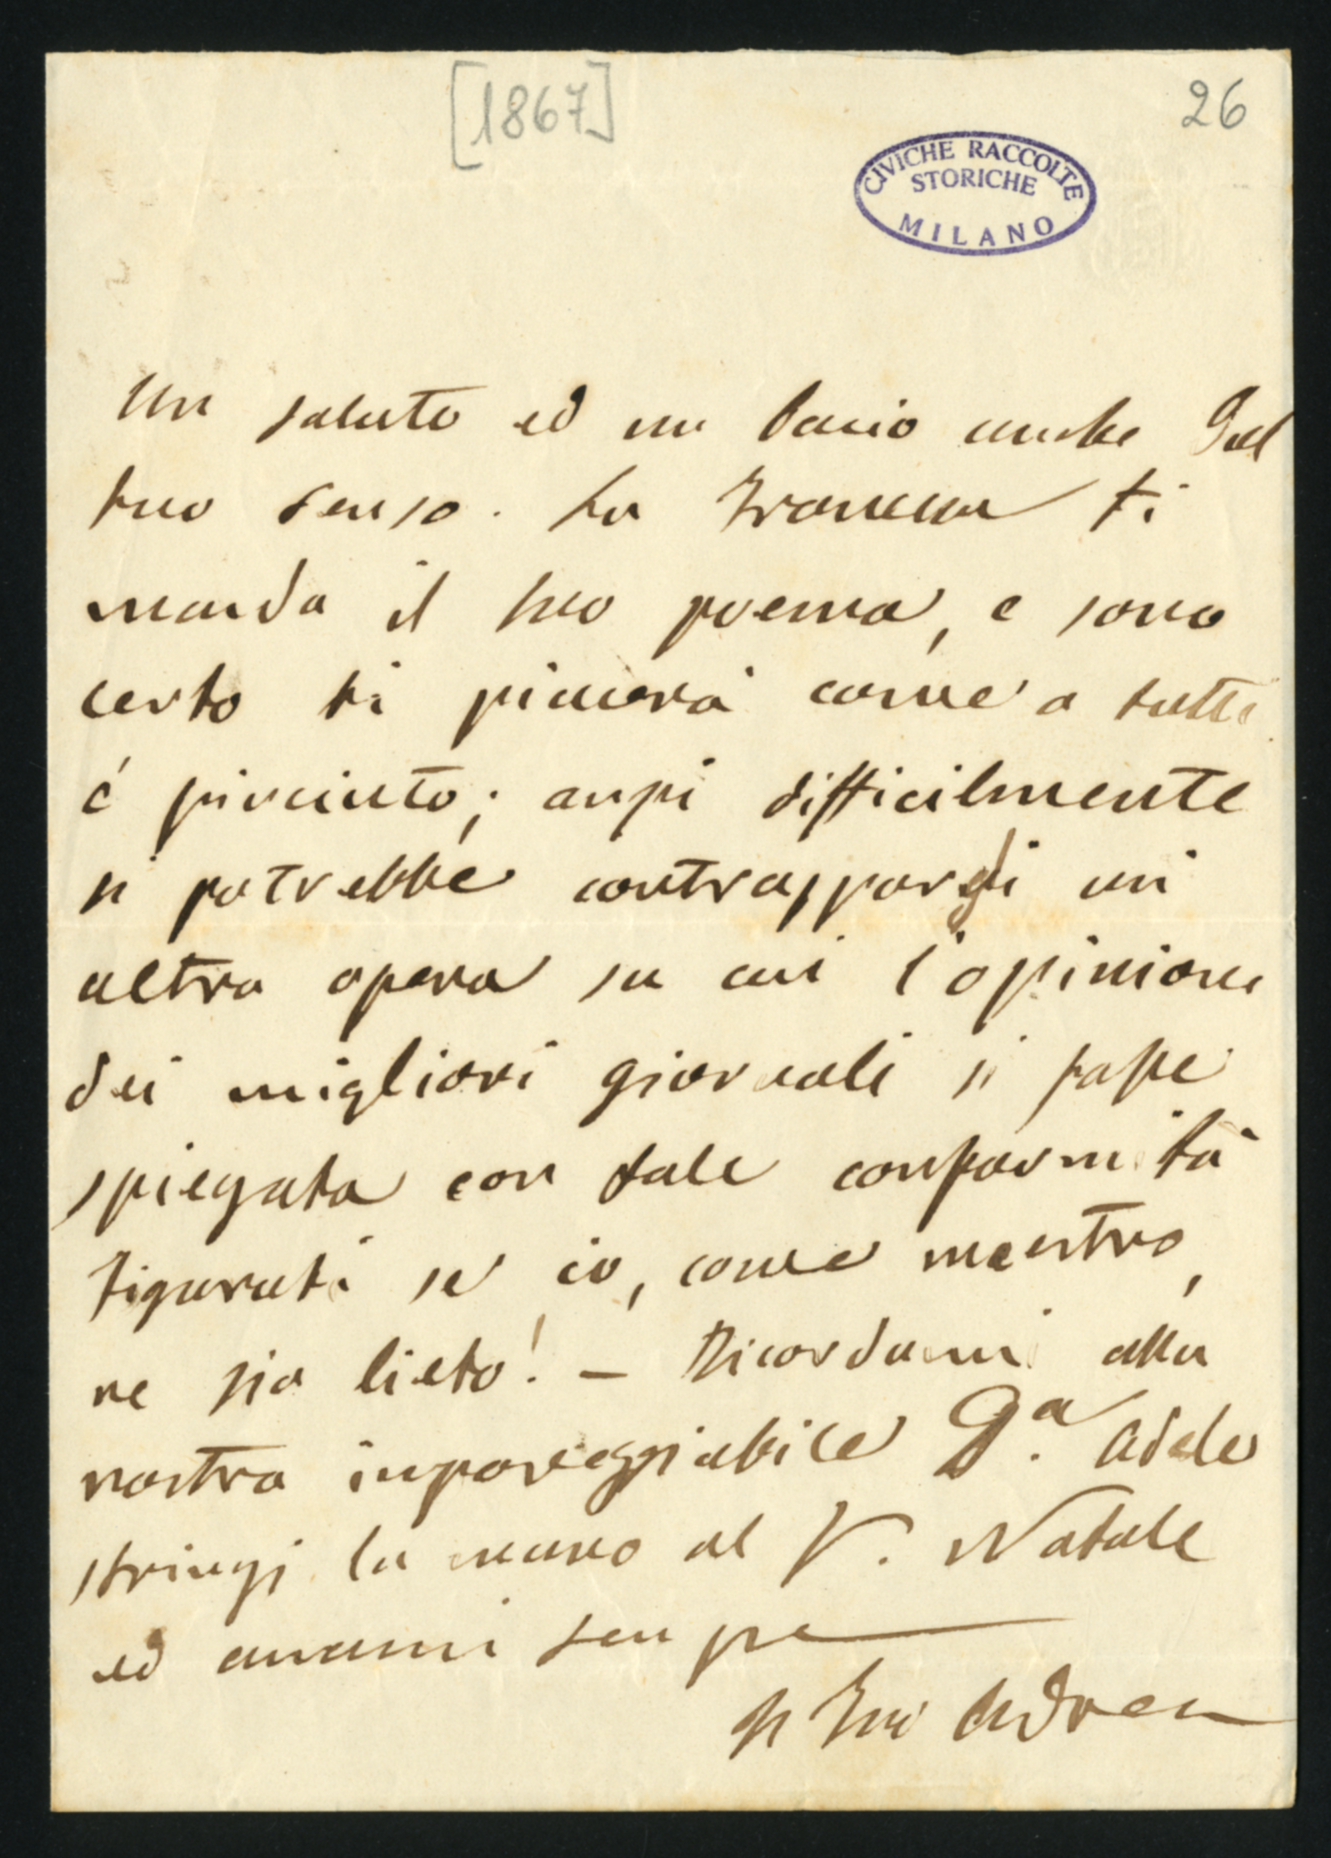 [1867]
26
CIVICHE RACCOLTE
STORICHE
MILANO
Un saluto ed un bacio anche dal
tuo Renso. La Francesca ti
manda il suo poema, e sono
certo ti piacerà come a tutti
é piaciuto; anzi difficilmente
si potrebbe contrapporgli un
altra opera su cui l'opinione
dei migliori giornali si fosse
spiegata con tale conformità
figurati se io, come maestro,
ne sia lieto! – Ricordami alla
nostra impareggiabile Da. Adele
stringi la mano al V. Natale
ed amami sempre
Il Tuo Andrea